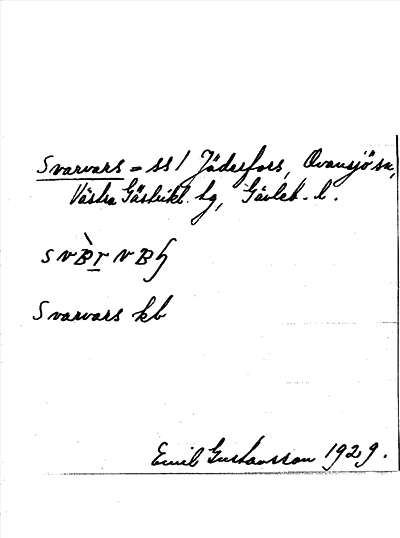 Svarvars = ss / Jäderfors, Ovansjö sn,
Västra Gästrikl. hg, Gävleb. l.
Svarvars kb
Emil Gustavsson 1929.